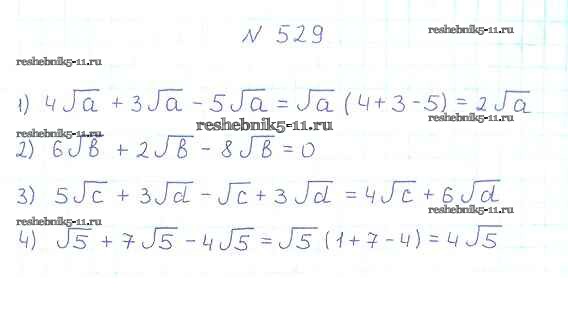 N 529
reshebnik5-11.ru
reshebnik5-11.ru
1) 4√a + 3√a - 5√a = √a (4+3-5) = 2√a
reshebnik5-11.ru
reshebnik5-11.ru
reshebnik5-11.ru
2) 6√b + 2√b - 8√b = 0
3) 5√c + 3√d - √c + 3√d = 4√c + 6√d
reshebnik5-11.ru
reshebnik5-11.ru
4) √5 + 7√5 - 4√5 = √5 (1+7-4) = 4√5